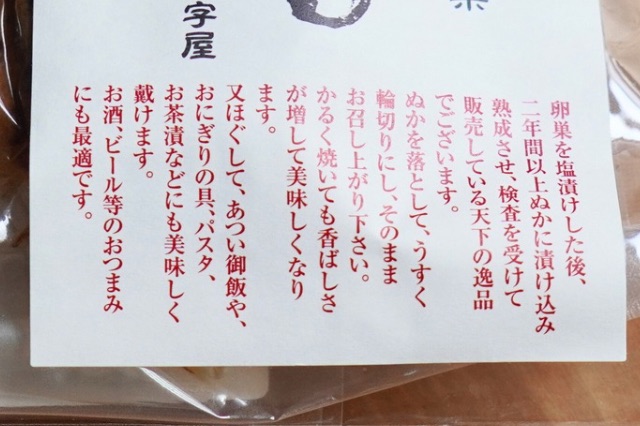 卵巣を塩漬けした後、
二年間以上ぬかに漬け込み
熟成させ、検査を受けて
販売している天下の逸品
でございます。
ぬかを落として、うすく
輪切りにし、そのまま
お召し上がり下さい。
かるく焼いても香ばしさ
が増して美味しくなり
ます。
又ほぐして、あつい御飯や、
おにぎりの具、パスタ、
お茶漬などにも美味しく
戴けます。
お酒、ビール等のおつまみ
にも最適です。
字屋